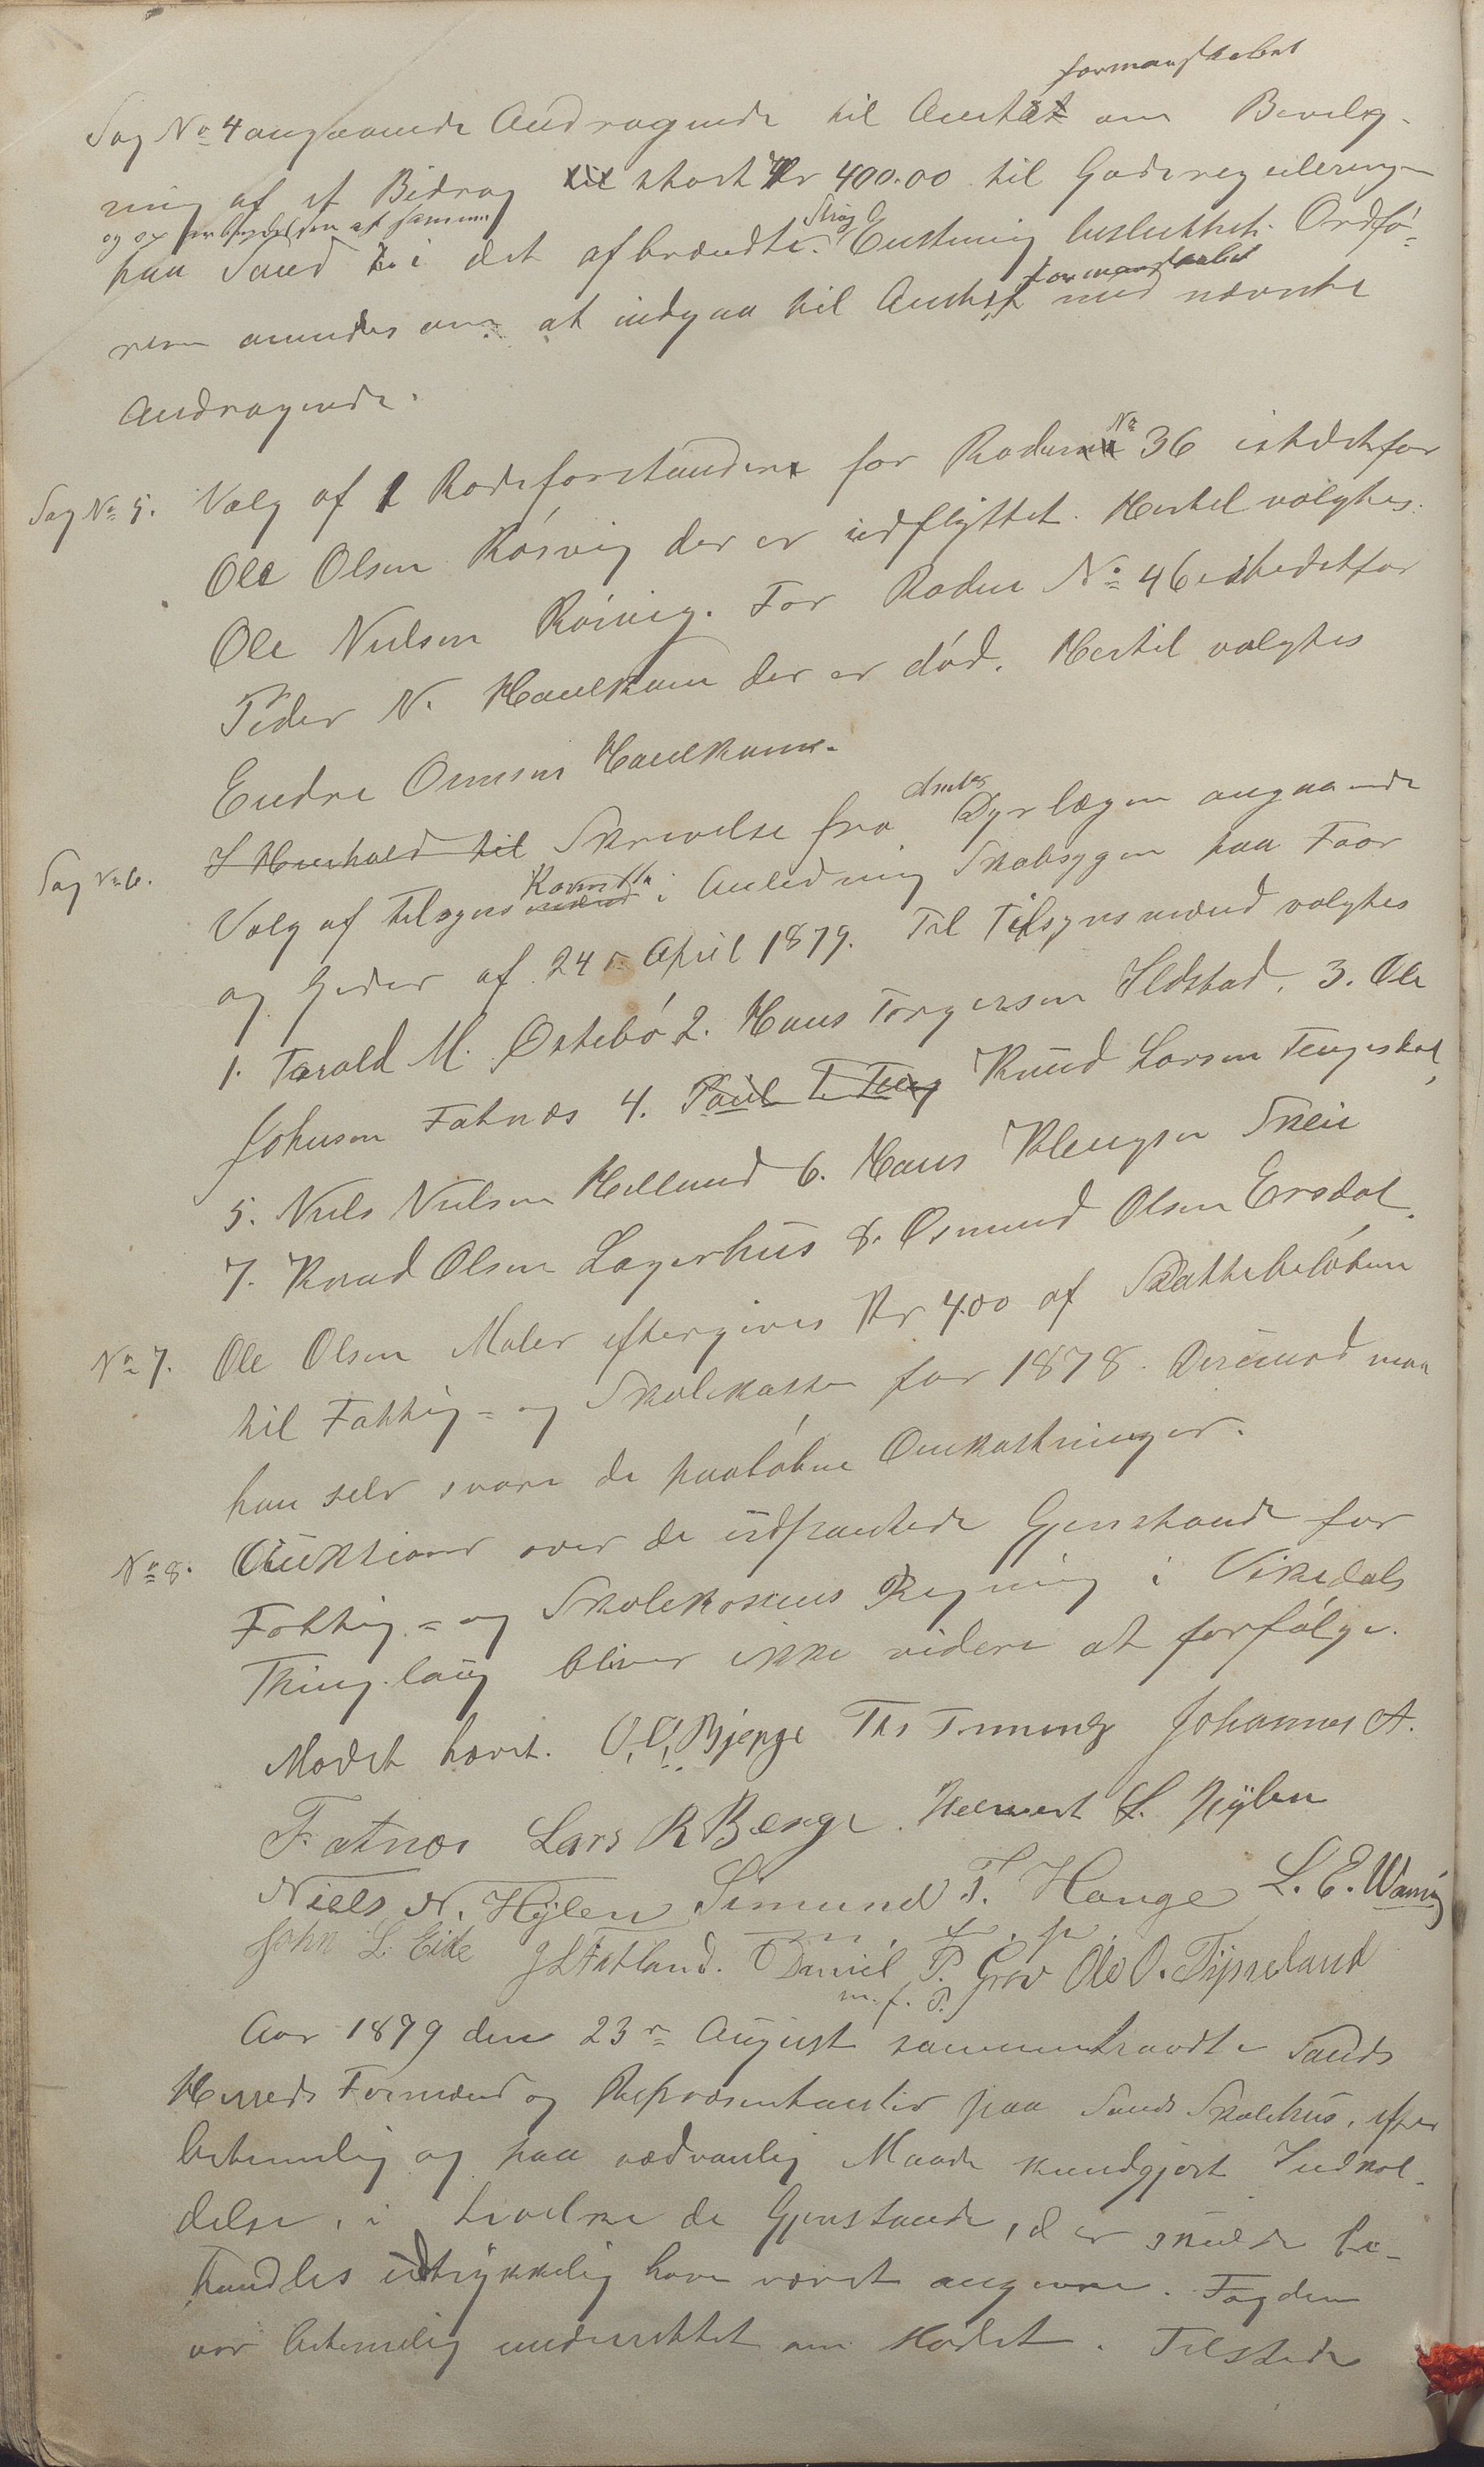 formanskabet
Sag No 4 angaaende Andragende til Amtet om Bevilg-
ning af et Bidrag til stort Kr 400.00 til Gaderegulering
og oparbeidelsen af samme
paa Sand i det afbrændte Strøg Enstemmig besluttet. Ordfø-
formanskabet
reren anmodes om at indgaa til Amtet med nævnte
Andragende.
Sag No 5. Valg af 1 Rodeforstandere for Roderne No 36 istedetfor
Ole Olsen Røsvig der er udflyttet. Hertil valgtes:
Ole Nielsen Røsvig. For Roden No 46 istedetfor
Peder N. Haulkam der er død. Hertil valgtes
Endre Omsen Haulkam.
Sag No 6. I Henhold til Skrivelse fra Amts Dyrlægen angaaende
Valg af Tilsyns mænd i Anledning Skabsygen paa Faar
og Geder af 24de April 1879. Til Tilsynsmænd valgtes
1. Tarald M. Østebø 2. Hans Torgersen Ilstad. 3. Ole
Johnsen Fatnæs 4. Paul T. Tung Knud Larsen Tengesdal,
5. Niels Nielsen Helland 6. Hans Klengsen Skeie
7. Knud Olsen Lagerhus 8. Osmund Olsen Ersdal.
No 7. Ole Olsen Maler eftergives Kr 4.00 af Skattebeløbene
til Fattig- og Skolekassen for 1878. Derimod maa
han selv svare de paaløbne Omkostninger.
No 8. Auktioner over de udpantede Gjenstande for
Fattig- og Skolekassens Regning i Vikedals
Thinglaug bliver ikke videre at forfølge.
Mødet hævet. O. O. Bjerge Ths Tmmung Johannes A.
Fatnæs Lars R Berge. L. Hylen
Niels N. Hylen Simund T. Hauge L. E. Waning
John L. Eide J L Fatland. Daniel P. Grov Ole O. Tjpseland
m. f. P.
Aar 1879 den 23de August sammentraadte Sands
Herreds Formænd og Repræsentanter paa Sands Skolehus, efter
betimelig og paa sædvanlig Maade kundgjort Indkal-
delse, i hvilke de Gjenstande, der skulde be-
handles udtrykkelig have været angivne. Fogden
var betimelig underrettet om Mødet. Tilstede